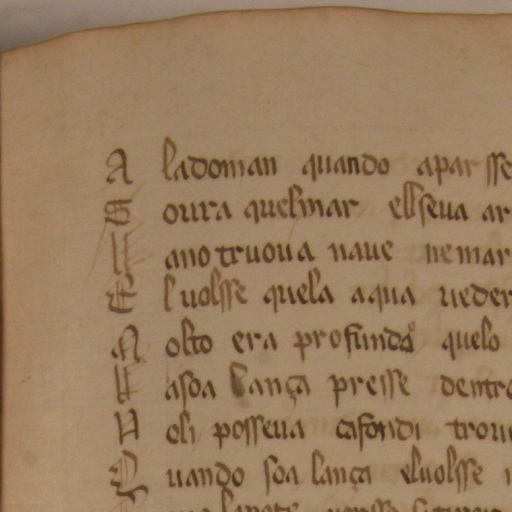 A ladoman quando aparsse
S oura quelmar ell seua ar
M ano truoua naue nemar
E l uolsse quela aqua ueder
M olto era profunda quelo
L asoa lança presse dentro
N oli posseua cafondi troue
Q uando soa lança eluolsse